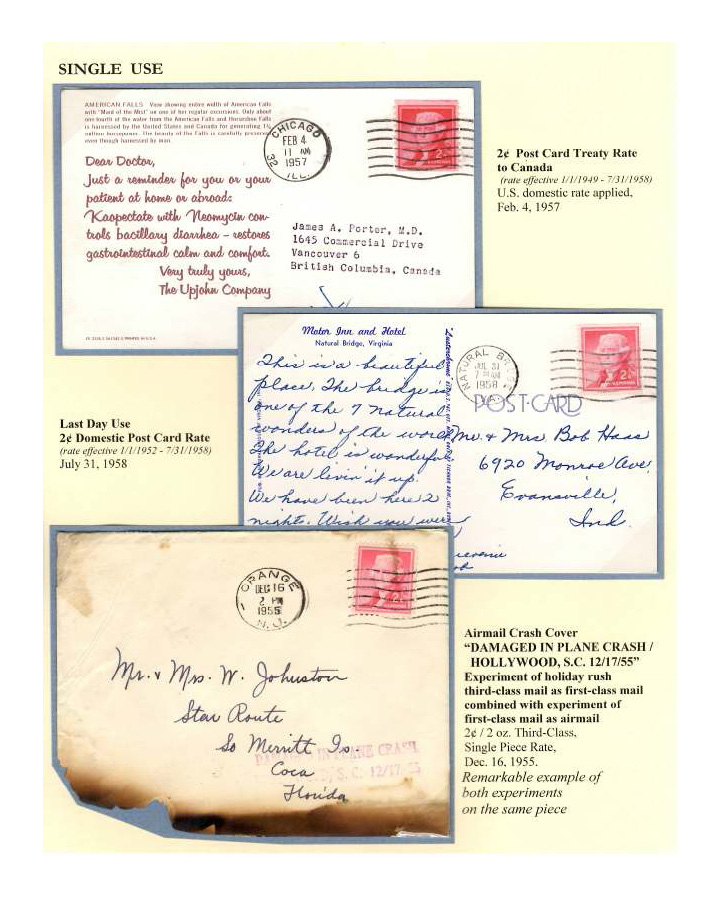 SINGLE USE
AMERICAN FALLS View showing entire width of American Falls
with "Maid of the Mist" on one of her regular excursions. Only about
one fourth of the water from the American Falls and Horseshoe Falls
is harnessed by the United States and Canada for generating 1½
million horsepower. The beauty of the Falls is carefully preserved
even though harnessed by man.
Dear Doctor,
Just a reminder for you or your
patient at home or abroad:
Kaopectate with Neomycin con-
trols bacillary diarrhea – restores
gastrointestinal calm and comfort.
Very truly yours,
The Upjohn Company
CHICAGO
FEB 4
11 AM
1957
32 ILL.
2¢
James A. Porter, M.D.
1645 Commercial Drive
Vancouver 6
British Columbia, Canada
2¢ Post Card Treaty Rate
to Canada
(rate effective 1/1/1949 - 7/31/1958)
U.S. domestic rate applied,
Feb. 4, 1957
Motor Inn and Hotel
Natural Bridge, Virginia
This is a beautiful
place. The bridge is
one of the 7 natural
wonders of the world
The hotel is wonderful
We are livin' it up.
We have been here 2
nights. Wish you were
NATURAL BR
JUL 31
7 AM
1958
VA.
2¢
POST CARD
Mr. & Mrs. Bob Haas
6920 Monroe Ave.
Evansville,
Ind.
Last Day Use
2¢ Domestic Post Card Rate
(rate effective 1/1/1952 - 7/31/1958)
July 31, 1958
ORANGE
DEC 16
2 PM
1955
N. J.
2¢
Mr. & Mrs. W. Johnston
Star Route
So Merritt Is.
Coca
Florida
DAMAGED IN PLANE CRASH
S. C. 12/17/55
Airmail Crash Cover
"DAMAGED IN PLANE CRASH /
HOLLYWOOD, S.C. 12/17/55"
Experiment of holiday rush
third-class mail as first-class mail
combined with experiment of
first-class mail as airmail
2¢ / 2 oz. Third-Class,
Single Piece Rate,
Dec. 16, 1955.
Remarkable example of
both experiments
on the same piece